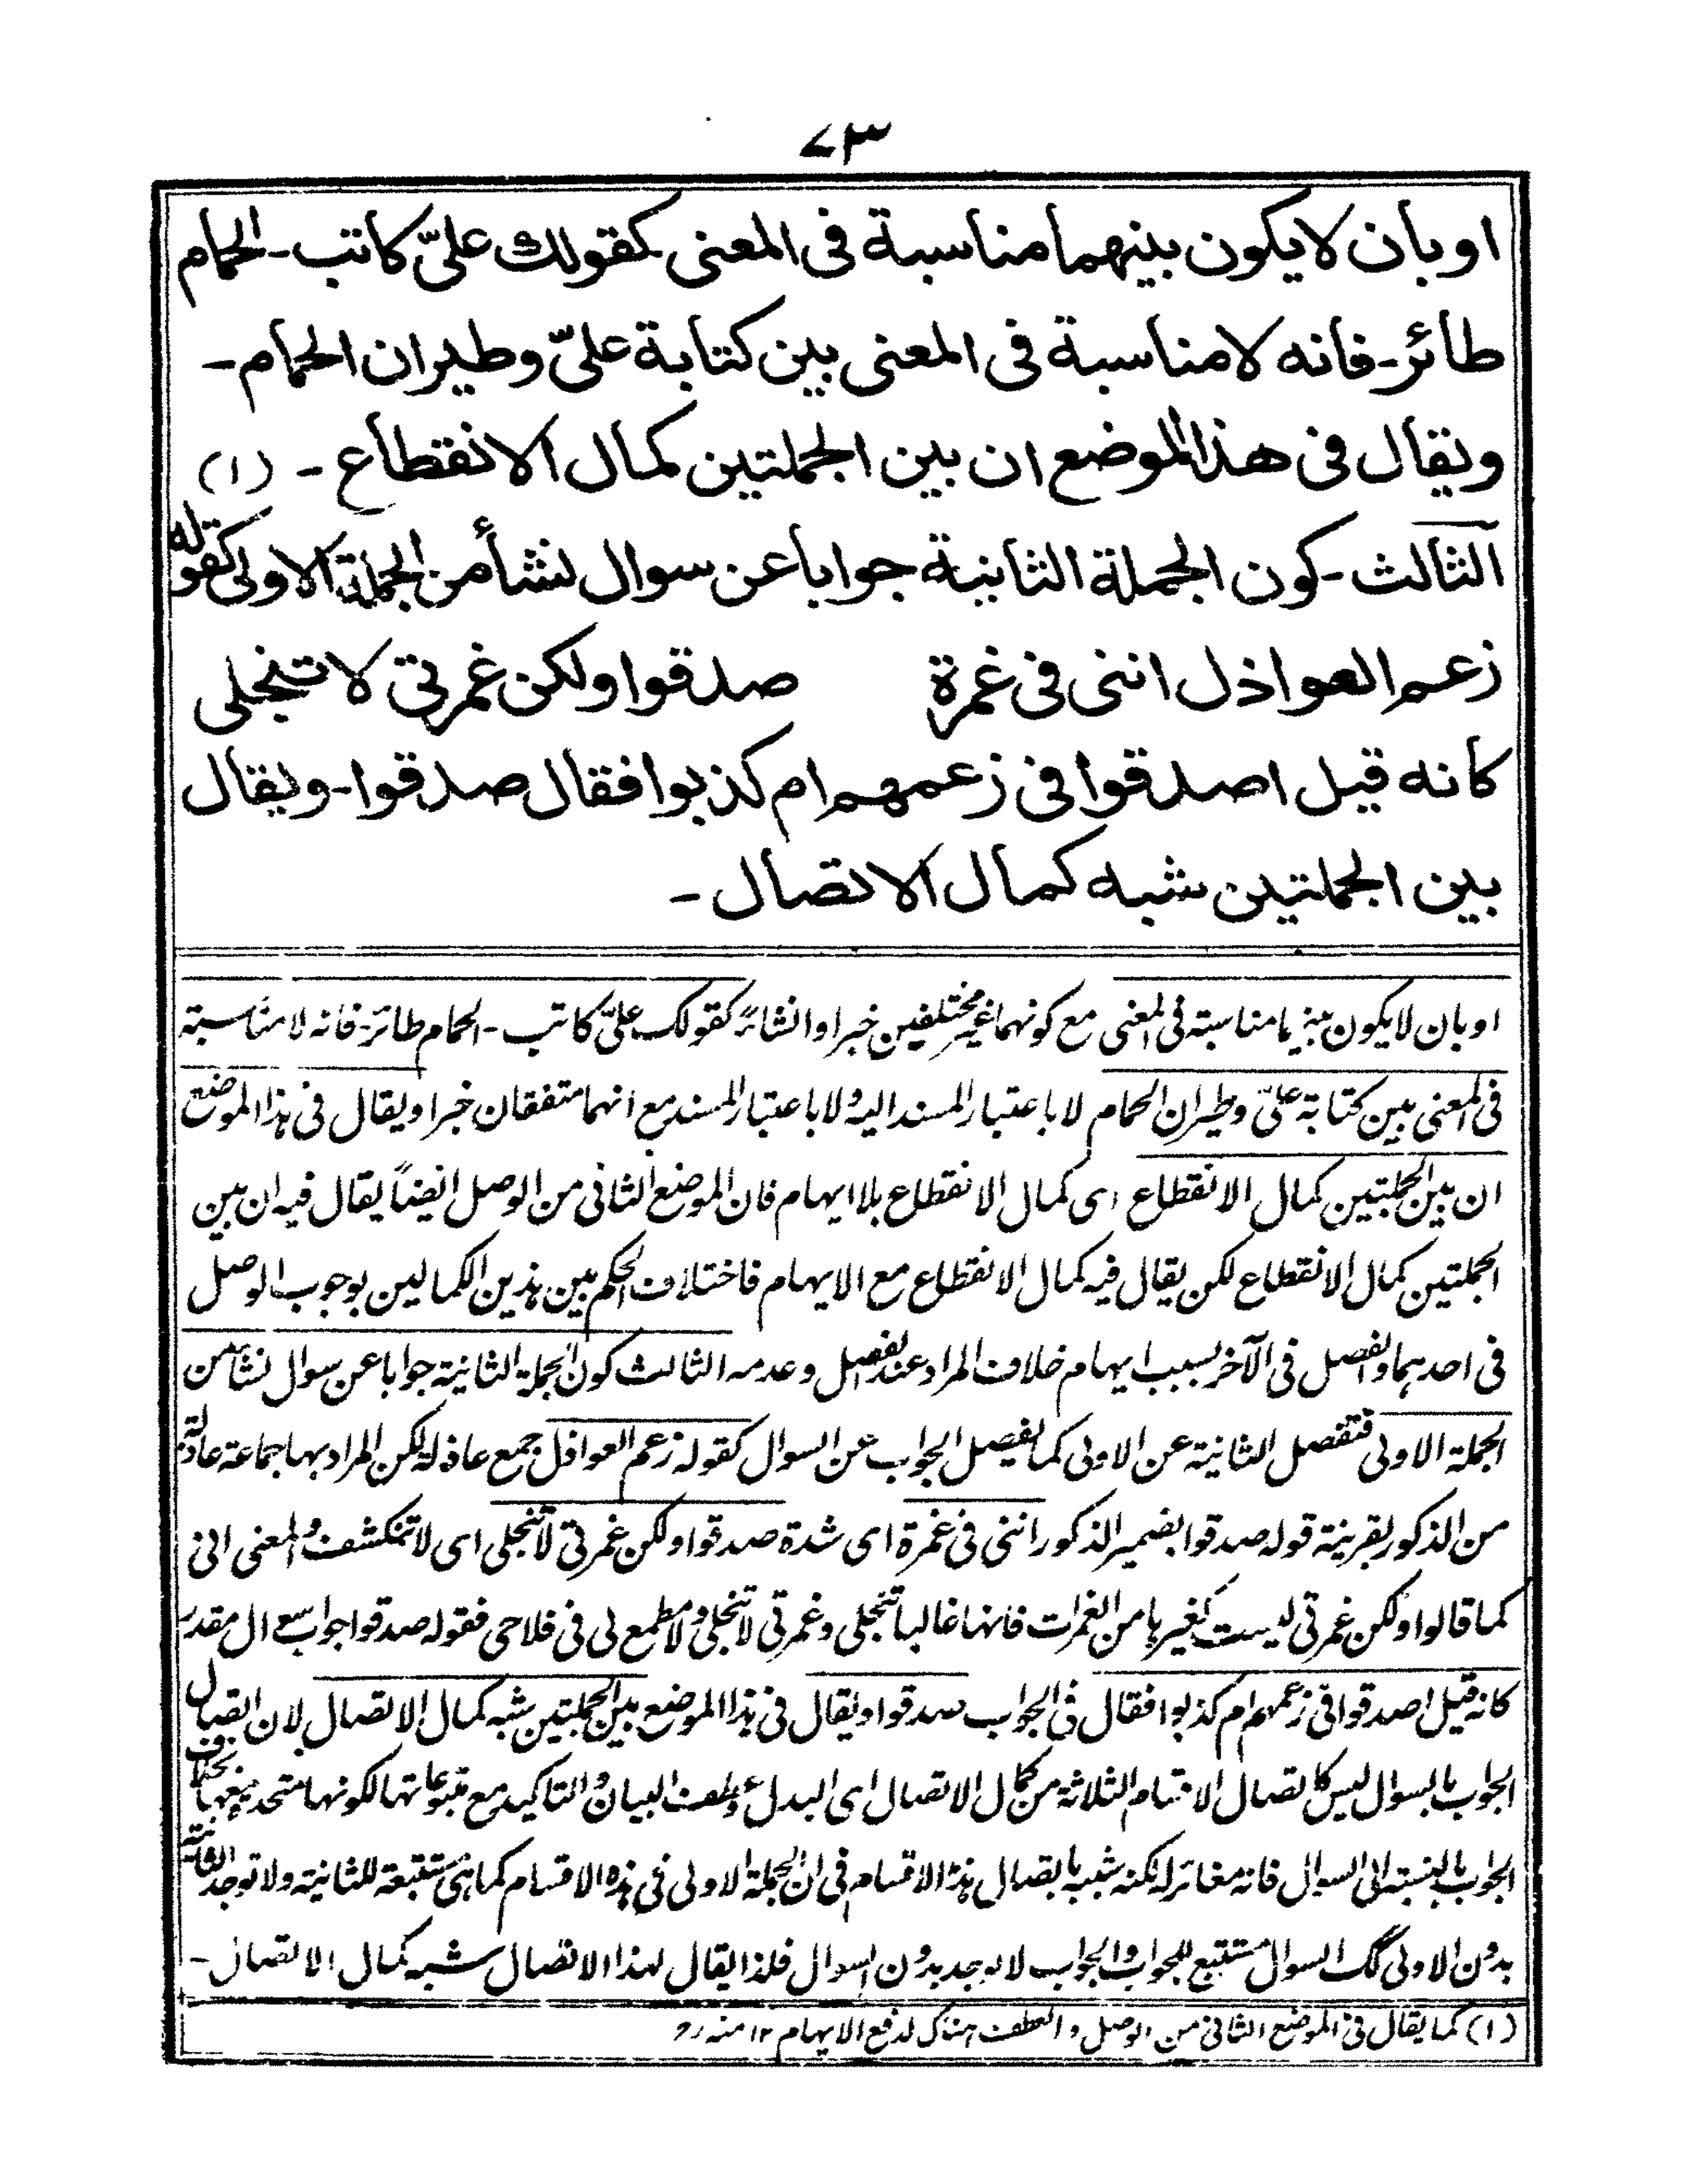 ٧٣
او بان لا يكون بينهما مناسبة فى المعنى كقولك علىّ كاتب - الحمام
طائر - فانه لا مناسبة فى المعنى بين كتابة علىّ وطيران الحمام -
ويقال فى هذا الموضع ان بين الجملتين كمال الانقطاع - (١)
الثالث - كون الجملة الثانية جوابا عن سوال نشأ من الجملة الاولى كقوله
زعم العواذل اننى فى غمرة صدقوا ولكن غمرتى لا تنجلى
كانه قيل اصدقوا فى زعمهم ام كذبوا فقال صدقوا - ويقال
بين الجملتين شبه كمال الاتصال -
او بان لا يكون بينهما مناسبة فى المعنى مع كونهما غير مختلفين خبرا وانشاءً كقولك علىّ كاتب - الحمام طائر - فانه لا مناسبة
فى المعنى بين كتابة علىّ وطيران الحمام لا باعتبار المسند اليه ولا باعتبار المسند مع انهما متفقان خبرا ويقال فى هذا الموضع
ان بين الجملتين كمال الانقطاع اى كمال الانقطاع بلا ايهام فان الموضع الثانى من الوصل ايضاً يقال فيه ان بين
الجملتين كمال الانقطاع لكن يقال فيه كمال الانقطاع مع الايهام فاختلاف الحكم بين هذين الكمالين بوجوب الوصل
فى احدهما والفصل فى الآخر بسبب ايهام خلاف المراد عند الفصل وعدمه الثالث كون الجملة الثانية جوابا عن سوال نشأ من
الجملة الاولى فتفصل الثانية عن الاولى كما يفصل الجواب عن السوال كقوله زعم العواذل جمع عاذلة لكن المراد بها جماعة عاذلة
من الذكور بقرينة قوله صدقوا بضمير الذكور اننى فى غمرة اى شدة صدقوا ولكن غمرتى لا تنجلى اى لا تنكشف والمعنى انى
كما قالوا ولكن غمرتى ليست كغيرها من الغمرات فانها غالبا تنجلى وغمرتى لا تنجلى ولا مطمع لى فى فلاحى فقوله صدقوا جواب سوال مقدر
كانه قيل اصدقوا فى زعمهم ام كذبوا فقال فى الجواب صدقوا ويقال فى هذا الموضع بين الجملتين شبه كمال الاتصال لان اتصال
الجواب بالسوال ليس كاتصال الاقسام الثلاثة من كمال الاتصال اى البدل وعطف البيان والتاكيد مع متبوعاتها لكونها متحدة معها بخلاف
الجواب بالنسبة الى السوال فانه مغائر له لكنه شبيه باتصال هذه الاقسام فى ان الجملة الاولى فى هذه الاقسام كما هى مستتبعة للثانية ولا توجد الثانية
بدون الاولى كك السوال مستتبع للجواب والجواب لا يوجد بدون السوال فلذا يقال لهذا الاتصال شبه كمال الاتصال -
(١) كما يقال فى الموضع الثانى من الوصل والعطف هناك لدفع الايهام ١٢ منه رح